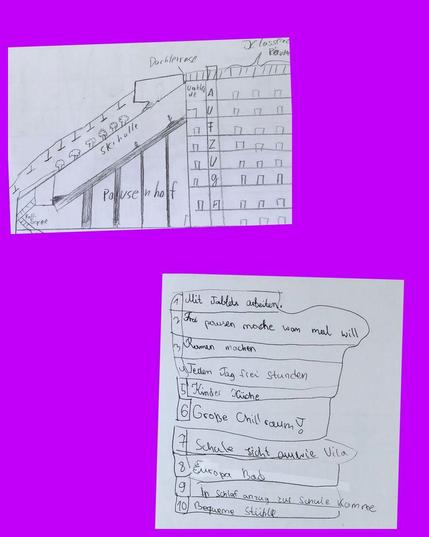 Dachterrase
JK Lassen
Skihalle
Pausenhof
A
U
F
Z
U
g
1 Mit Tablets arbeiten!
2 Frei pausen mache wan mal will
3 Ramen machen
4 Jeden Tag frei stunden
5 Kinder Küche
6 Große Chillraum!
7 Schule sieht aus wie Vila
8 Europa Bad
9 in Schlaf anzug zur Schule Komme
10 Bequeme Stühle